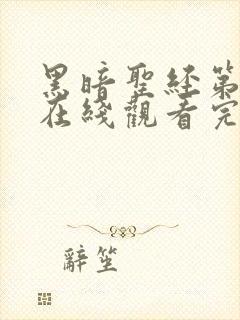 黑暗聖經第
在綫觀看完
辭笙